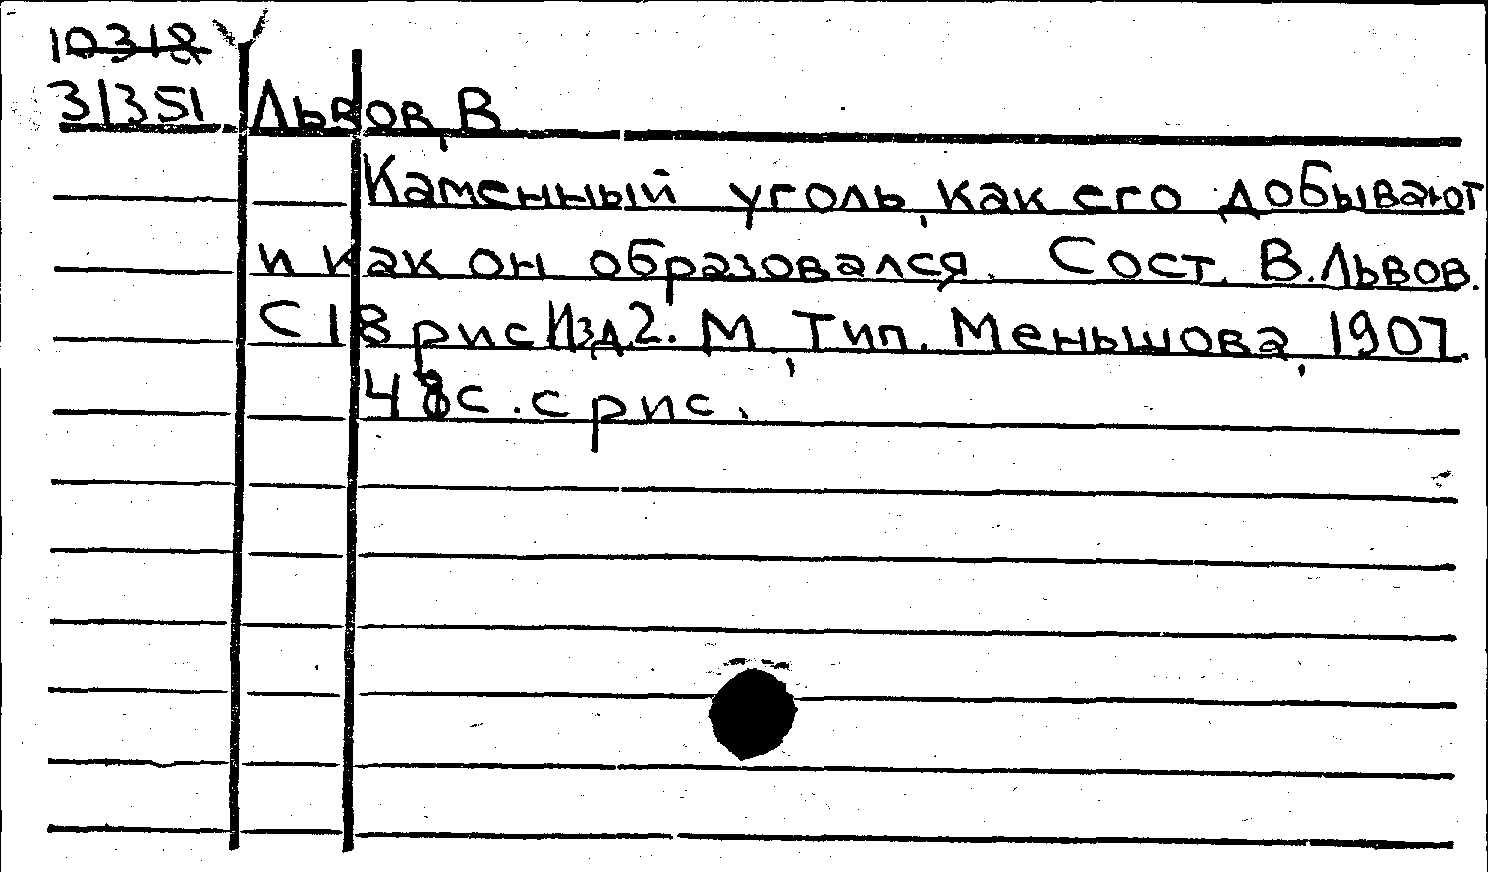 10318
31351 Львов, В
Каменный уголь, как его добывают
и как он образовался. Сост. В. Львов.
С 18 рис Изд. 2. М., Тип. Меньшова, 1907.
48с. с рис.